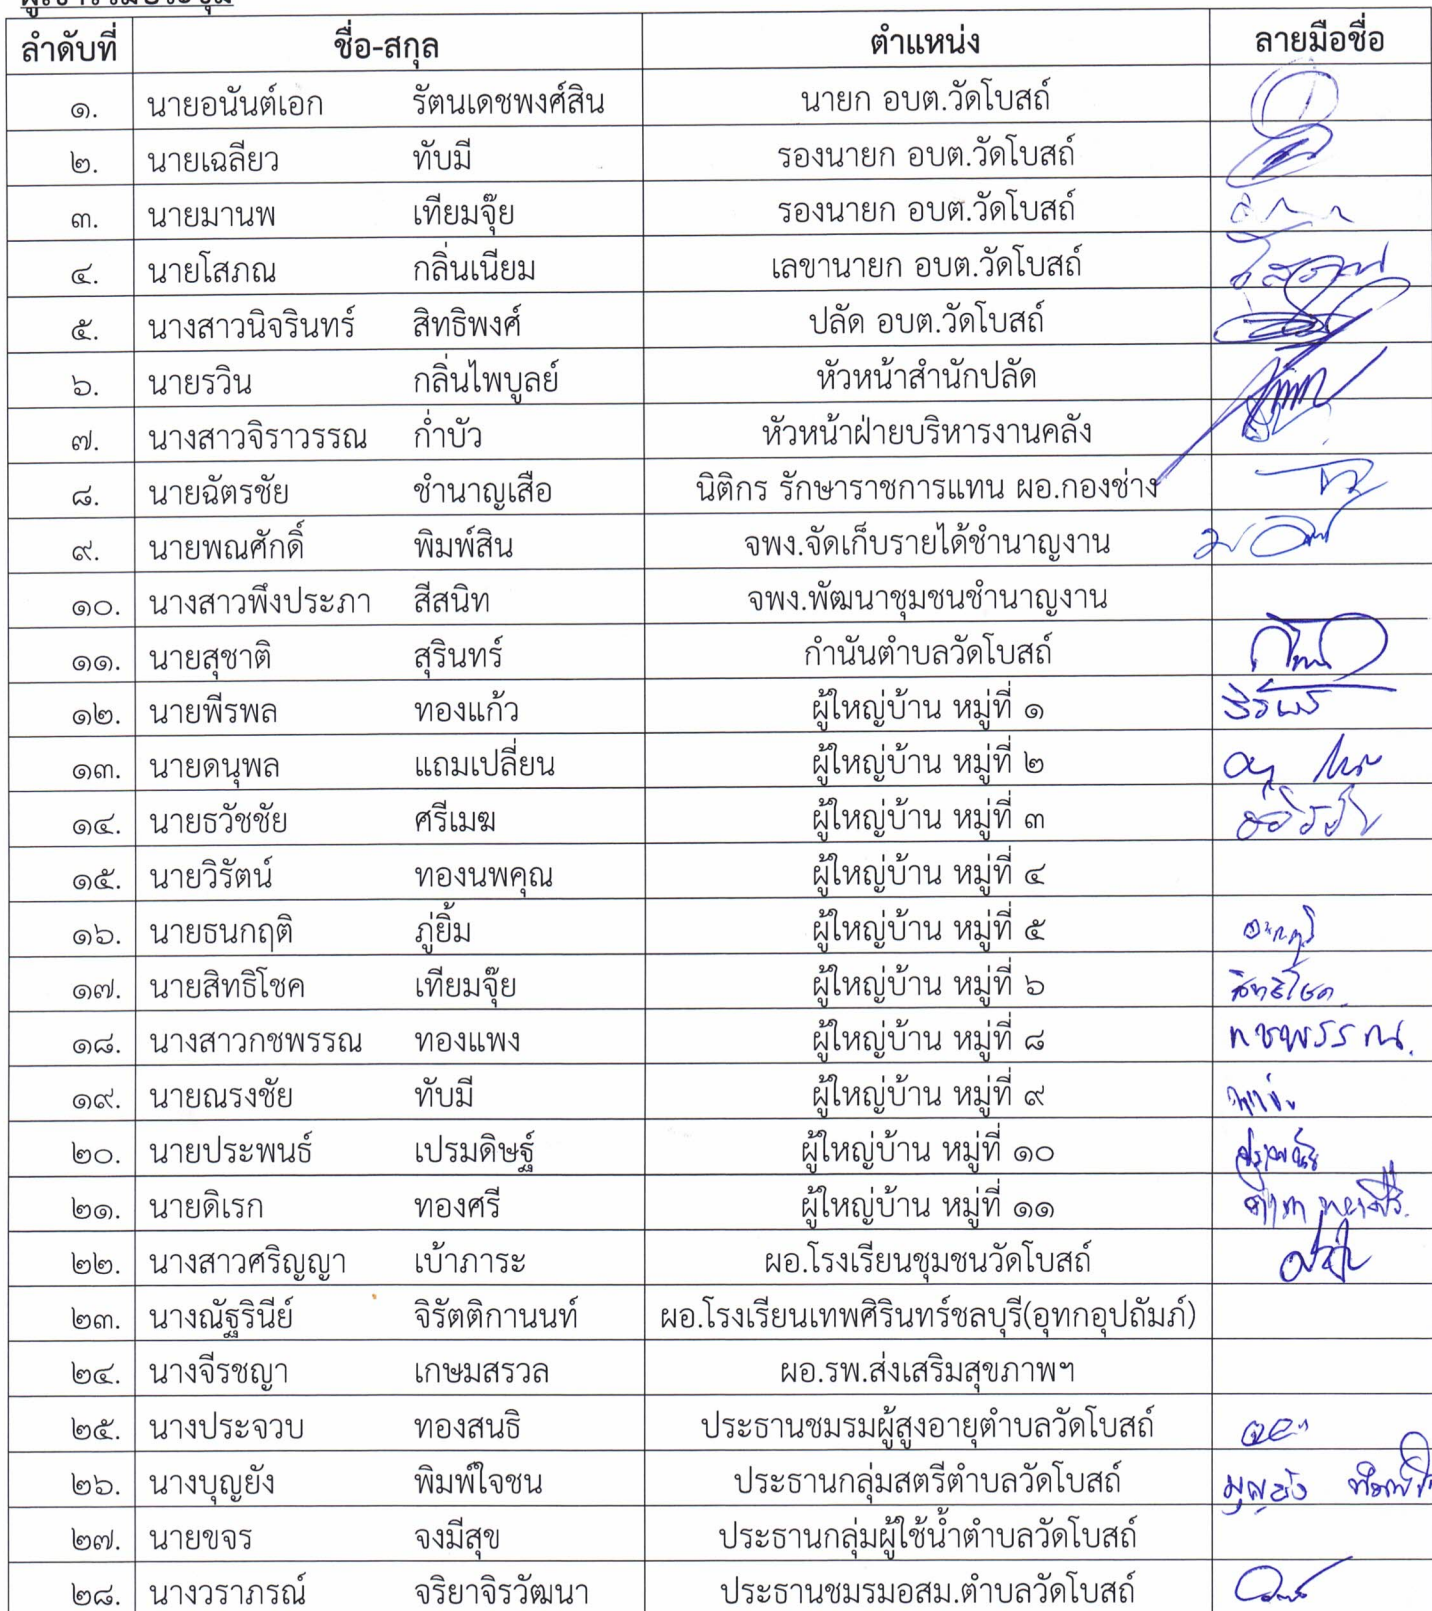 ผู้เข้าร่วมประชุม
ลำดับที่ ชื่อ-สกุล ตำแหน่ง ลายมือชื่อ
๑. นายอนันต์เอก รัตนเดชพงศ์สิน นายก อบต.วัดโบสถ์
๒. นายเฉลียว ทับมี รองนายก อบต.วัดโบสถ์
๓. นายมานพ เทียมจุ๊ย รองนายก อบต.วัดโบสถ์
๔. นายโสภณ กลิ่นเนียม เลขานายก อบต.วัดโบสถ์ โสภณ
๕. นางสาวนิจรินทร์ สิทธิพงศ์ ปลัด อบต.วัดโบสถ์
๖. นายรวิน กลิ่นไพบูลย์ หัวหน้าสำนักปลัด
๗. นางสาวจิราวรรณ ก่ำบัว หัวหน้าฝ่ายบริหารงานคลัง
๘. นายฉัตรชัย ชำนาญเสือ นิติกร รักษาราชการแทน ผอ.กองช่าง
๙. นายพณศักดิ์ พิมพ์สิน จพง.จัดเก็บรายได้ชำนาญงาน
๑๐. นางสาวพึงประภา สีสนิท จพง.พัฒนาชุมชนชำนาญงาน
๑๑. นายสุชาติ สุรินทร์ กำนันตำบลวัดโบสถ์
๑๒. นายพีรพล ทองแก้ว ผู้ใหญ่บ้าน หมู่ที่ ๑
๑๓. นายดนุพล แถมเปลี่ยน ผู้ใหญ่บ้าน หมู่ที่ ๒
๑๔. นายธวัชชัย ศรีเมฆ ผู้ใหญ่บ้าน หมู่ที่ ๓
๑๕. นายวิรัตน์ ทองนพคุณ ผู้ใหญ่บ้าน หมู่ที่ ๔
๑๖. นายธนกฤติ ภู่ยิ้ม ผู้ใหญ่บ้าน หมู่ที่ ๕
๑๗. นายสิทธิโชค เทียมจุ๊ย ผู้ใหญ่บ้าน หมู่ที่ ๖ สิทธิโชค
๑๘. นางสาวกชพรรณ ทองแพง ผู้ใหญ่บ้าน หมู่ที่ ๘ กชพรรณ
๑๙. นายณรงชัย ทับมี ผู้ใหญ่บ้าน หมู่ที่ ๙
๒๐. นายประพนธ์ เปรมดิษฐ์ ผู้ใหญ่บ้าน หมู่ที่ ๑๐
๒๑. นายดิเรก ทองศรี ผู้ใหญ่บ้าน หมู่ที่ ๑๑
๒๒. นางสาวศริญญา เบ้าภาระ ผอ.โรงเรียนชุมชนวัดโบสถ์
๒๓. นางณัฐรินีย์ จิรัตติกานนท์ ผอ.โรงเรียนเทพศิรินทร์ชลบุรี(อุทกอุปถัมภ์)
๒๔. นางจีรชญา เกษมสรวล ผอ.รพ.ส่งเสริมสุขภาพฯ
๒๕. นางประจวบ ทองสนธิ ประธานชมรมผู้สูงอายุตำบลวัดโบสถ์
๒๖. นางบุญยัง พิมพ์ใจชน ประธานกลุ่มสตรีตำบลวัดโบสถ์ บุญยัง
๒๗. นายขจร จงมีสุข ประธานกลุ่มผู้ใช้น้ำตำบลวัดโบสถ์
๒๘. นางวราภรณ์ จริยาจิรวัฒนา ประธานชมรมอสม.ตำบลวัดโบสถ์